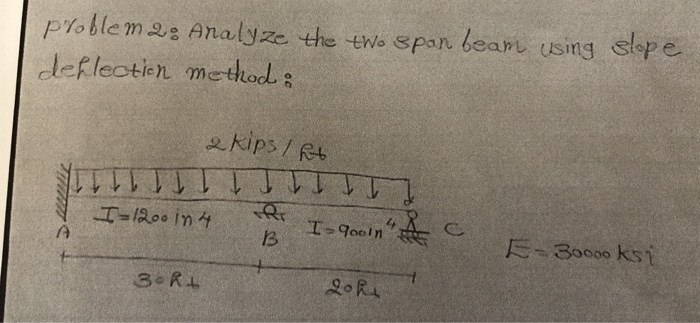 problem 2: Analyze the two span beam using slope
deflection method:
2 kips/ft
I=1200 in 4
I=900in⁴
A
B
C
E=30000 ksi
30ft
20ft